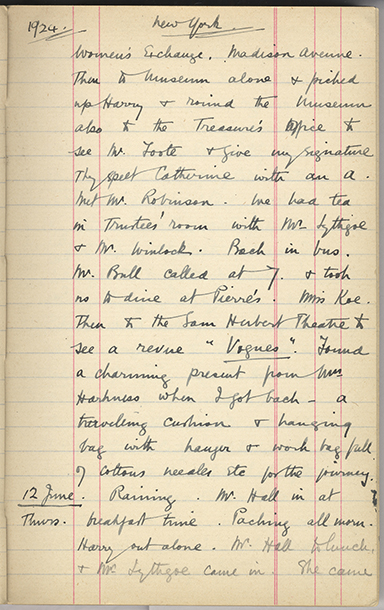 1924. New York.
Women's Exchange, Madison Avenue.
Then to Museum alone & picked
up Harry & round the Museum
also to the Treasurer's Office to
see Mr. Foote & give my signature
They spelt Catherine with an a.
Met Mr. Robinson. We had tea
in Trustees' room with Mr. Lythgoe
& Mr. Winlock. Back in bus.
Mr. Bull called at 7. & took
us to dine at Pierre's. Miss Koe.
Then to the Sam Herbert Theatre to
see a revue "Vogues". Found
a charming present from Mrs
Harkness when I got back - a
travelling cushion & hanging
bag with hanger & work bag full
of cottons needles etc for the journey.
12 June. Raining. Mr. Hall in at
Thurs. breakfast time. Packing all morn.
Harry out alone. Mr. Hall to lunch,
& Mr. Lythgoe came in. She came